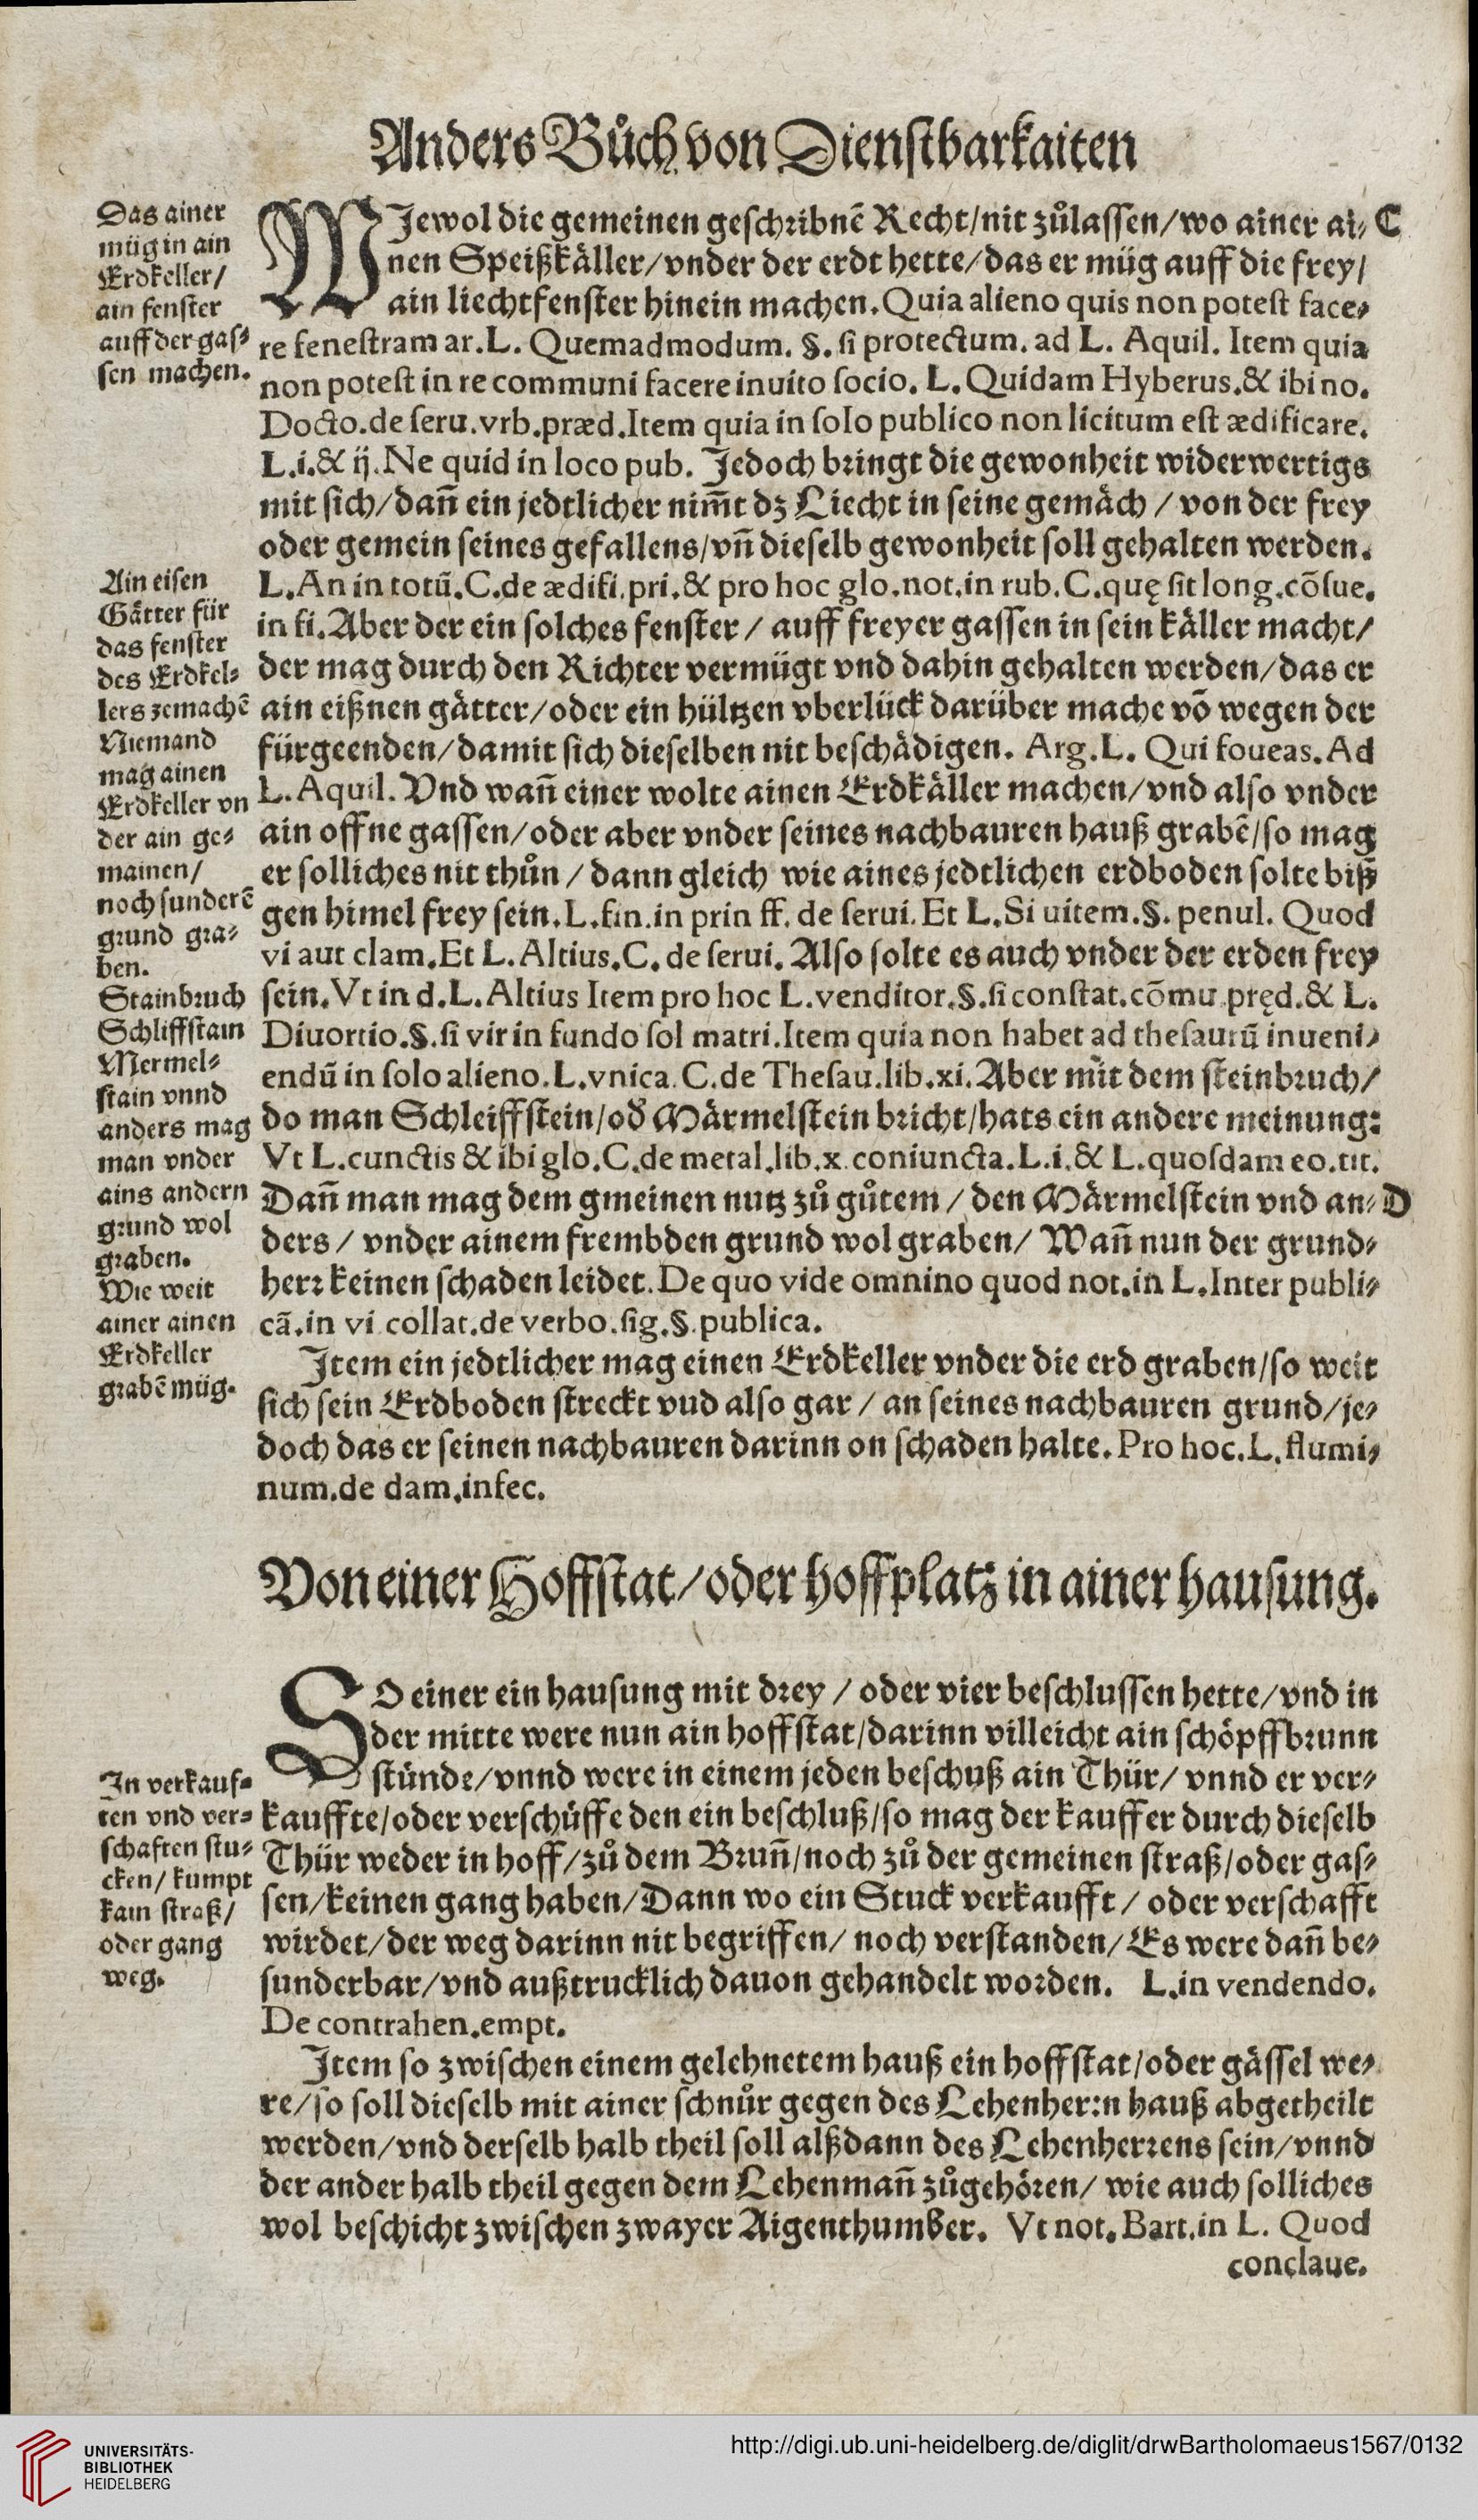 Anders Bůch von Dienstbarkaiten
Das ainer
müg in ain
Erdkeller/
ain fenster
auff der gas⸗
sen machen.
WJewol die gemeinen geschribnē Recht/nit zůlassen/wo ainer ai⸗ C
nen Speißkäller/vnder der erdt hette/das er müg auff die frey/
ain liechtfenster hinein machen. Quia alieno quis non potest face⸗
re fenestram ar. L. Quemadmodum. §. si protectum. ad L. Aquil. Item quia
non potest in re communi facere inuito socio. L. Quidam Hyberus. & ibi no.
Docto. de seru. vrb. præd. Item quia in solo publico non licitum est ædificare.
L. i. & ij. Ne quid in loco pub. Jedoch bringt die gewonheit widerwertigs
mit sich/dañ ein jedtlicher nim̃t dz Liecht in seine gemäch / von der frey
oder gemein seines gefallens/vñ dieselb gewonheit soll gehalten werden.
Ain eisen
Gätter für
das fenster
des Erdkel⸗
lers zemachē
Niemand
mag ainen
Erdkeller vn
der ain ge⸗
mainen/
noch sunderē
grund gra⸗
ben.
Stainbruch
Schliffstain
Mermel⸗
stain vnnd
anders mag
man vnder
ains andern
grund wol
graben.
Wie weit
ainer ainen
Erdkeller
grabē müg.
L. An in totũ. C. de ædifi. pri. & pro hoc glo. not. in rub. C. quę sit long. cõsue.
in fi. Aber der ein solches fenster / auff freyer gassen in sein käller macht/
der mag durch den Richter vermügt vnd dahin gehalten werden/das er
ain eißnen gätter/oder ein hültzen vberlück darüber mache võ wegen der
fürgeenden/damit sich dieselben nit beschädigen. Arg. L. Qui foueas. Ad
L. Aquil. Vnd wañ einer wolte ainen Erdkäller machen/vnd also vnder
ain offne gassen/oder aber vnder seines nachbauren hauß grabē/so mag
er solliches nit thůn / dann gleich wie aines jedtlichen erdboden solte biß
gen himel frey sein. L. fin. in prin ff. de serui. Et L. Si uitem. §. penul. Quod
vi aut clam. Et L. Altius. C. de serui. Also solte es auch vnder der erden frey
sein. Vt in d. L. Altius Item pro hoc L. venditor. §. si constat. cõmu. pręd. & L.
Diuortio. §. si vir in fundo sol matri. Item quia non habet ad thesaurũ inueni⸗
endũ in solo alieno. L. vnica. C. de Thesau. lib. xi. Aber mit dem steinbruch/
do man Schleiffstein/od̕ Märmelstein bricht/hats ein andere meinung:
Vt L. cunctis & ibi glo. C. de metal. lib. x. coniuncta. L. i. & L. quosdam eo. tit.
Dañ man mag dem gmeinen nutz zů gůtem / den Märmelstein vnd an⸗ D
ders / vnder ainem frembden grund wol graben/ Wañ nun der grund⸗
herr keinen schaden leidet. De quo vide omnino quod not. in L. Inter publi⸗
cã. in vi collat. de verbo. sig. §. publica.
Jtem ein jedtlicher mag einen Erdkeller vnder die erd graben/so weit
sich sein Erdboden streckt vud also gar / an seines nachbauren grund/je⸗
doch das er seinen nachbauren darinn on schaden halte. Pro hoc. L. flumi⸗
num. de dam. infec.
Von einer Hoffstat/oder hoffplatz in ainer hausung.
SO einer ein hausung mit drey / oder vier beschlussen hette/vnd in
der mitte were nun ain hoffstat/darinn villeicht ain schöpffbrunn
stünde/vnnd were in einem jeden beschuß ain Thür/ vnnd er ver⸗
kauffte/oder verschüffe den ein beschluß/so mag der kauffer durch dieselb
Thür weder in hoff/zů dem Brunñ/noch zů der gemeinen straß/oder gas⸗
sen/keinen gang haben/Dann wo ein Stuck verkaufft / oder verschafft
wirdet/der weg darinn nit begriffen/ noch verstanden/Es were dañ be⸗
sunderbar/vnd außtrucklich dauon gehandelt worden. L. in vendendo.
De contrahen. empt.
In verkauf⸗
ten vnd ver⸗
schaften stu⸗
cken/ kumpt
kain straß/
oder gang
weg.
Jtem so zwischen einem gelehnetem hauß ein hoffstat/oder gässel we⸗
re/so soll dieselb mit ainer schnůr gegen des Lehenherrn hauß abgetheilt
werden/vnd derselb halb theil soll alßdann des Lehenherrens sein/vnnd
der ander halb theil gegen dem Lehenmañ zůgehören/ wie auch solliches
wol beschicht zwischen zwayer Aigenthumber. Vt not. Bart. in L. Quod
conclaue.
UNIVERSITÄTS-
BIBLIOTHEK
HEIDELBERG
http://digi.ub.uni-heidelberg.de/diglit/drwBartholomaeus1567/0132